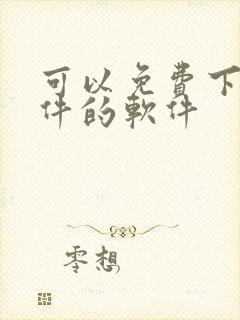 可以免費下
件的軟件
零想